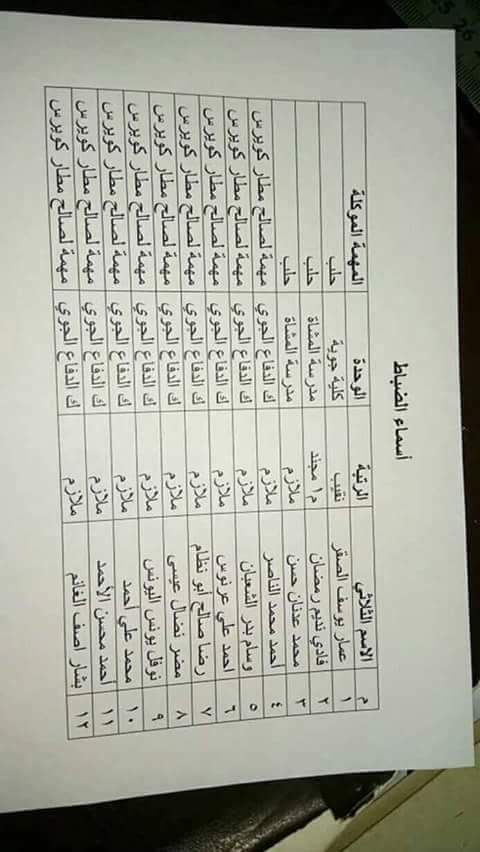 أسماء الضباط
م الاسم الثلاثي الرتبة الوحدة المهمة الموكلة
١ عمار يوسف الصقر نقيب كلية جوية حلب
٢ فادي نديم رمضان م١ مجند مدرسة المشاة حلب
٣ محمد عدنان حسن ملازم مدرسة المشاة حلب
٤ احمد محمد الناصر ملازم ك الدفاع الجوي مهمة لصالح مطار كويرس
٥ وسام بدر الشعبان ملازم ك الدفاع الجوي مهمة لصالح مطار كويرس
٦ احمد علي عرنوس ملازم ك الدفاع الجوي مهمة لصالح مطار كويرس
٧ رضا صالح ابو نظام ملازم ك الدفاع الجوي مهمة لصالح مطار كويرس
٨ مضر نضال عيسى ملازم ك الدفاع الجوي مهمة لصالح مطار كويرس
٩ نوفل يونس اليونس ملازم ك الدفاع الجوي مهمة لصالح مطار كويرس
١٠ محمد علي احمد ملازم ك الدفاع الجوي مهمة لصالح مطار كويرس
١١ أحمد محسن الأحمد ملازم ك الدفاع الجوي مهمة لصالح مطار كويرس
١٢ بشار اصف الغانم ملازم ك الدفاع الجوي مهمة لصالح مطار كويرس
25 26